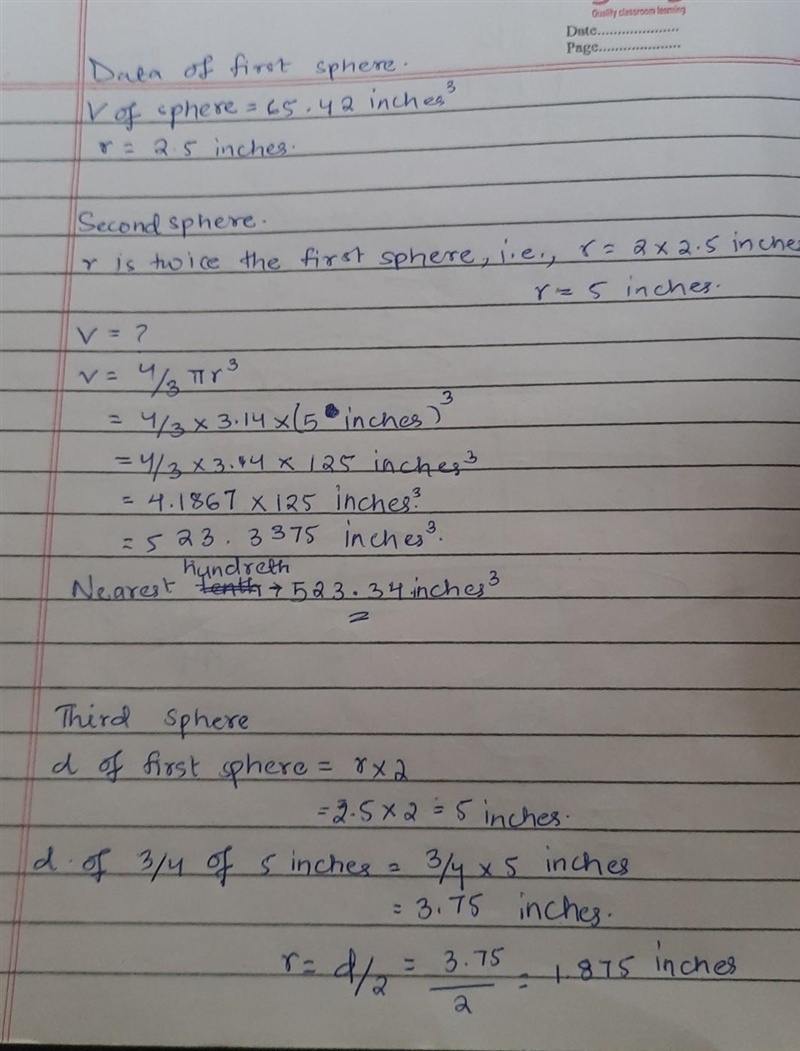 Quality classroom learning
Date....................
Page....................
Data of first sphere.
V of sphere = 65.42 inches³
r = 2.5 inches.
Second sphere.
r is twice the first sphere, i.e., r = 2 x 2.5 inches
r = 5 inches.
V = ?
V = 4/3 πr³
= 4/3 x 3.14 x (5 inches)³
= 4/3 x 3.14 x 125 inches³
= 4.1867 x 125 inches³.
= 523.3375 inches³.
hundreth
Nearest tenth → 523.34 inches³
Third sphere
d of first sphere = r x 2
= 2.5 x 2 = 5 inches.
d of 3/4 of 5 inches = 3/4 x 5 inches
= 3.75 inches.
r = d/2 = 3.75/2 = 1.875 inches